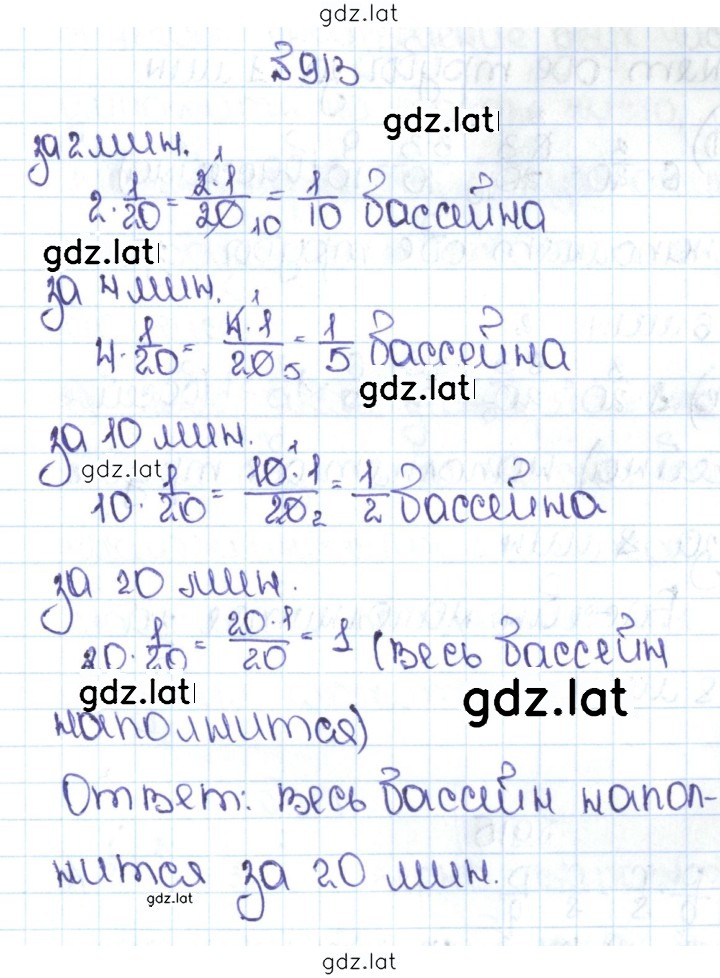 gdz.lat
№ 913
gdz.lat
за 2 мин.
2 · 1/20 = 2·1/20 = 1/10 бассейна
gdz.lat
за 4 мин.
4 · 1/20 = 4·1/20 = 1/5 бассейна
gdz.lat
за 10 мин.
gdz.lat
10 · 1/20 = 10·1/20 = 1/2 бассейна
за 20 мин.
20 · 1/20 = 20·1/20 = 1 (весь бассейн
gdz.lat
gdz.lat
наполнится)
Ответ: весь бассейн напол-
нится за 20 мин.
gdz.lat
gdz.lat